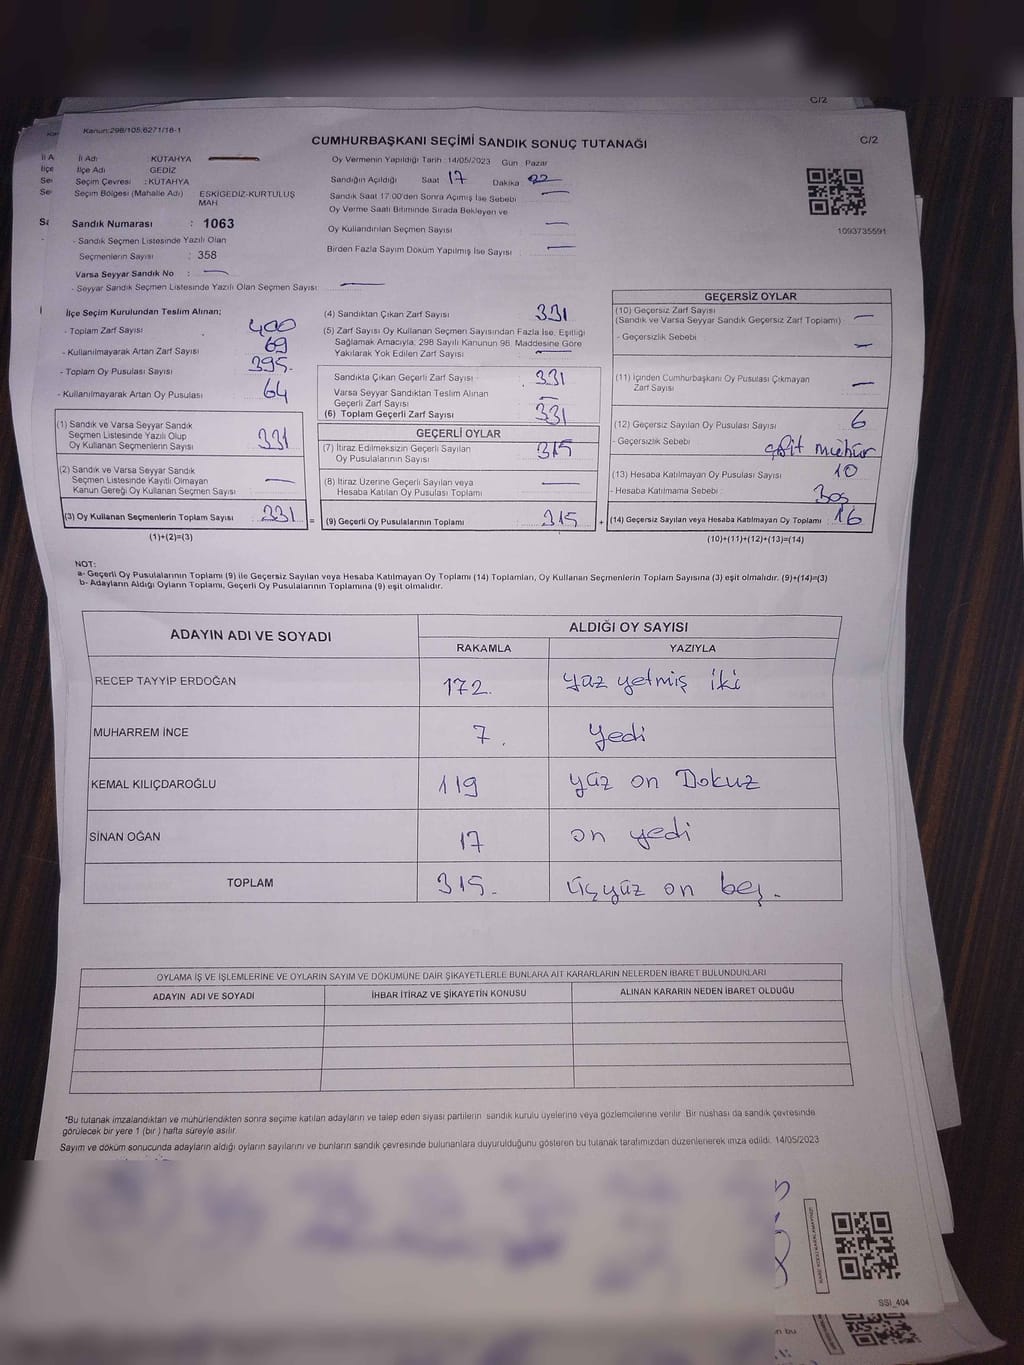 C/2
Kanun:298/105,6271/16-1
CUMHURBAŞKANI SEÇİMİ SANDIK SONUÇ TUTANAĞI
C/2
İl Adı : KÜTAHYA
İlçe Adı GEDİZ
Seçim Çevresi : KÜTAHYA
Seçim Bölgesi (Mahalle Adı) ESKİGEDİZ-KURTULUŞ
MAH.
Sandık Numarası : 1063
- Sandık Seçmen Listesinde Yazılı Olan
Seçmenlerin Sayısı : 358
Varsa Seyyar Sandık No : —
- Seyyar Sandık Seçmen Listesinde Yazılı Olan Seçmen Sayısı: —
Oy Vermenin Yapıldığı Tarih : 14/05/2023 Gün Pazar
Sandığın Açıldığı Saat 17 Dakika 22
Sandık Saat 17:00'den Sonra Açımış İse Sebebi —
Oy Verme Saati Bitiminde Sırada Bekleyen ve
Oy Kullandırılan Seçmen Sayısı —
Birden Fazla Sayım Döküm Yapılmış İse Sayısı —
1093735591
İlçe Seçim Kurulundan Teslim Alınan;
- Toplam Zarf Sayısı 400
- Kullanılmayarak Artan Zarf Sayısı 69
- Toplam Oy Pusulası Sayısı 395
- Kullanılmayarak Artan Oy Pusulası 64
(1) Sandık ve Varsa Seyyar Sandık
Seçmen Listesinde Yazılı Olup
Oy Kullanan Seçmenlerin Sayısı 331
(2) Sandık ve Varsa Seyyar Sandık
Seçmen Listesinde Kayıtlı Olmayan
Kanun Gereği Oy Kullanan Seçmen Sayısı —
(3) Oy Kullanan Seçmenlerin Toplam Sayısı 331 =
(1)+(2)=(3)
(4) Sandıktan Çıkan Zarf Sayısı 331
(5) Zarf Sayısı Oy Kullanan Seçmen Sayısından Fazla İse, Eşitliği
Sağlamak Amacıyla, 298 Sayılı Kanunun 98. Maddesine Göre
Yakılarak Yok Edilen Zarf Sayısı —
Sandıkta Çıkan Geçerli Zarf Sayısı 331
Varsa Seyyar Sandıktan Teslim Alınan
Geçerli Zarf Sayısı —
(6) Toplam Geçerli Zarf Sayısı 331
GEÇERLİ OYLAR
(7) İtiraz Edilmeksizin Geçerli Sayılan
Oy Pusulalarının Sayısı 315
(8) İtiraz Üzerine Geçerli Sayılan veya
Hesaba Katılan Oy Pusulası Toplamı —
(9) Geçerli Oy Pusulalarının Toplamı 315 +
GEÇERSİZ OYLAR
(10) Geçersiz Zarf Sayısı
(Sandık ve Varsa Seyyar Sandık Geçersiz Zarf Toplamı) —
- Geçersizlik Sebebi —
(11) İçinden Cumhurbaşkanı Oy Pusulası Çıkmayan
Zarf Sayısı —
(12) Geçersiz Sayılan Oy Pusulası Sayısı 6
- Geçersizlik Sebebi mühür
(13) Hesaba Katılmayan Oy Pusulası Sayısı 10
- Hesaba Katılmama Sebebi : Boş
(14) Geçersiz Sayılan veya Hesaba Katılmayan Oy Toplamı 16
(10)+(11)+(12)+(13)=(14)
NOT:
a- Geçerli Oy Pusulalarının Toplamı (9) ile Geçersiz Sayılan veya Hesaba Katılmayan Oy Toplamı (14) Toplamları, Oy Kullanan Seçmenlerin Toplam Sayısına (3) eşit olmalıdır. (9)+(14)=(3)
b- Adayların Aldığı Oyların Toplamı, Geçerli Oy Pusulalarının Toplamına (9) eşit olmalıdır.
ADAYIN ADI VE SOYADI ALDIĞI OY SAYISI
RAKAMLA YAZIYLA
RECEP TAYYİP ERDOĞAN 172. yüz yetmiş iki
MUHARREM İNCE 7. yedi
KEMAL KILIÇDAROĞLU 119 yüz on Dokuz
SİNAN OĞAN 17 on yedi
TOPLAM 315. üçyüz on beş.
OYLAMA İŞ VE İŞLEMLERİNE VE OYLARIN SAYIM VE DÖKÜMÜNE DAİR ŞİKAYETLERLE BUNLARA AİT KARARLARIN NELERDEN İBARET BULUNDUKLARI
ADAYIN ADI VE SOYADI İHBAR İTİRAZ VE ŞİKAYETİN KONUSU ALINAN KARARIN NEDEN İBARET OLDUĞU
*Bu tutanak imzalandıktan ve mühürlendikten sonra seçime katılan adayların ve talep eden siyasi partilerin sandık kurulu üyelerine veya gözlemcilerine verilir. Bir nüshası da sandık çevresinde
görülecek bir yere 1 (bir ) hafta süreyle asılır.
Sayım ve döküm sonucunda adayların aldığı oyların sayılarını ve bunların sandık çevresinde bulunanlara duyurulduğunu gösteren bu tutanak tarafımızdan düzenlenerek imza edildi. 14/05/2023
SSI_404